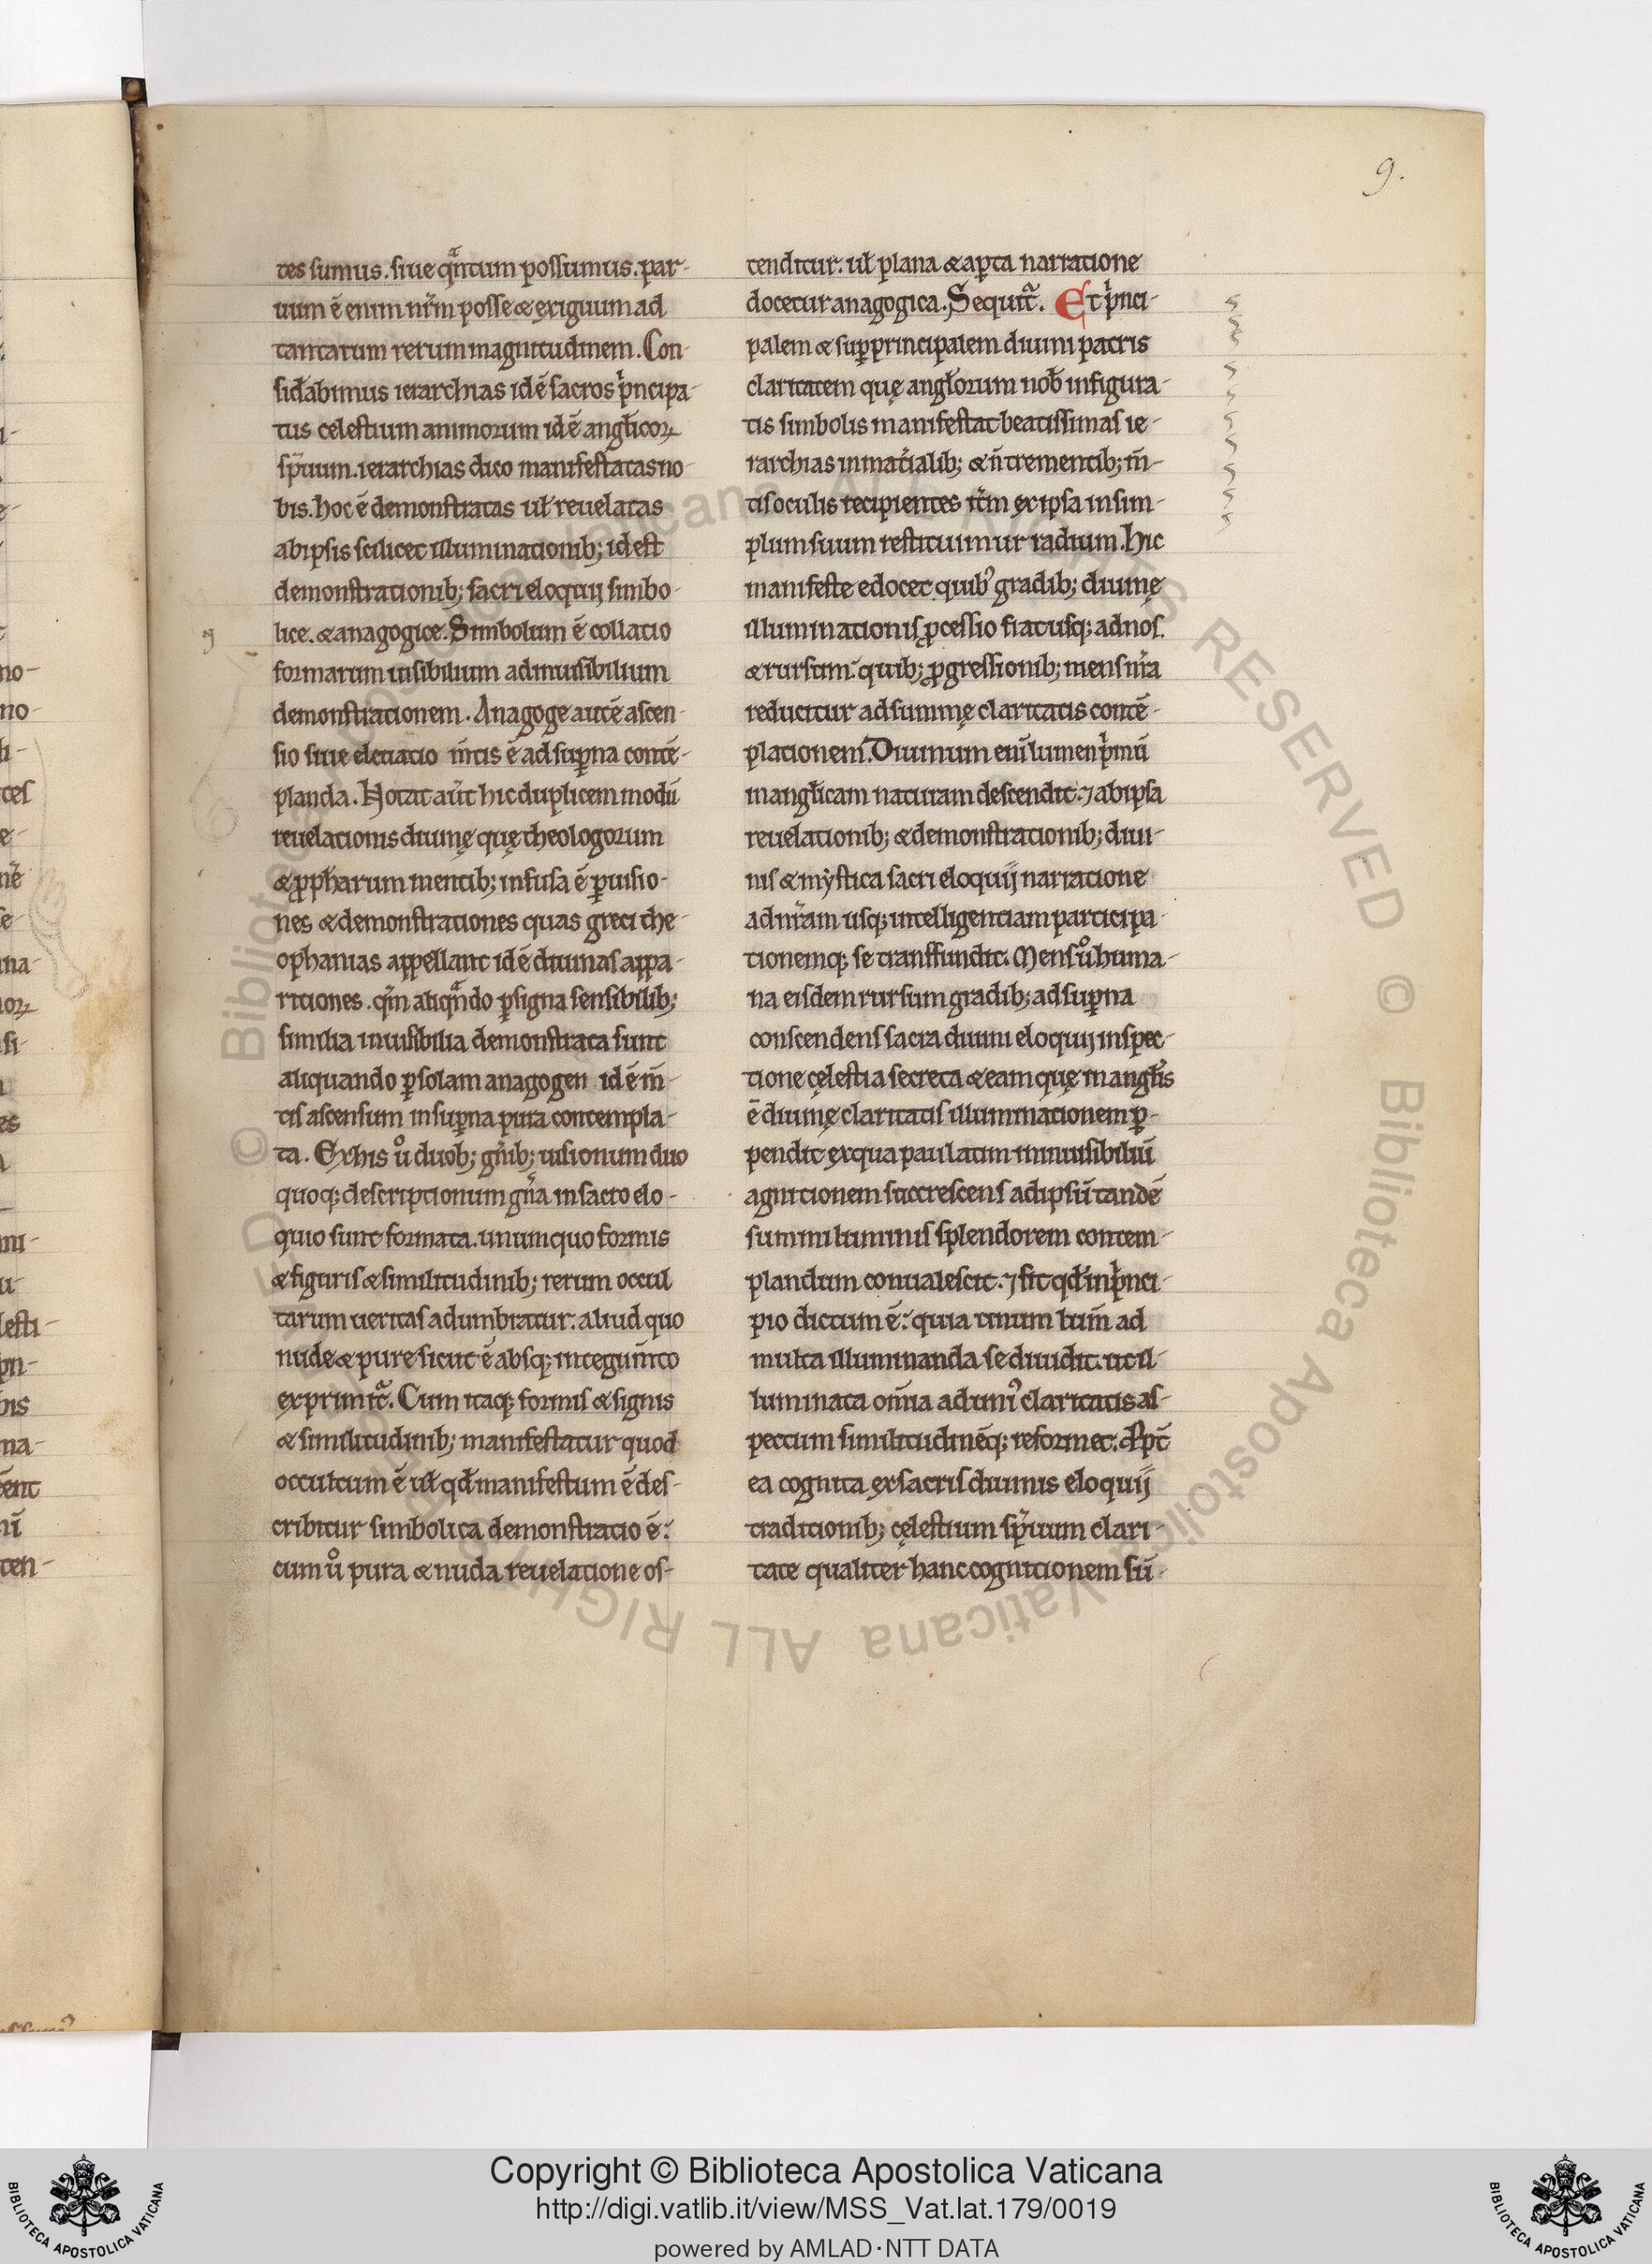 9.
tes sumus. siue qͣntum possumus. par-
uum ē enim nr̄m posse & exiguum ad
tantarum rerum magnitudinem. Con-
sid̄abimus ierarchias id ē sacros pͥncipa-
tus celestium animorum id ē angl̄icoꝝ
sp̄iuum. ierarchias dico manifestatas no-
bis. hoc ē demonstratas ul̄ reuelatas
ab ipsis scilicet illuminationib; id est
demonstrationib; sacri eloquij simbo-
lice. & anagogice. Simbolum ē collatio
formarum uisibilium ad inuisibilium
demonstrationem. Anagoge autē ascen-
sio siue eleuatio m̄tis ē ad suꝑna contē-
planda. Notat aūt hic duplicem modū
reuelationis diuinę quę theologorum
& ꝓph̄arum mentib; infusa ē ꝑ uisio-
nes & demonstrationes quas greci the-
ophanias appellant id ē diuinas appa-
ritiones. qm̄ aliqͣndo ꝑ signa sensibilib;
similia inuisibilia demonstrata sunt
aliquando ꝑ solam anagogen id ē m̄-
tis ascensum in suꝑna pura contempla-
ta. Ex his uͦ duob; gn̄ib; uisionum duo
quoq; descriptionum gn̄a in sacro elo-
quio sunt formata. unum quo formis
& figuris & similitudinib; rerum occul
tarum ueritas adumbratur. aliud quo
nude & pure sicut ē absq; integum̄to
exprimitͣ. Cum itaq; formis & signis
& similitudinib; manifestatur quod
occultum ē ul̄ qd̄ manifestum ē des-
cribitur simbolica demonstratio ē.
cum uͦ pura & nuda reuelatione os-
tenditur. ul̄ plana & aꝑta narratione
docetur anagogica. Sequitͣ. Et pͥnci-
palem & suꝑprincipalem diuini patris
claritatem quę angl̄orum nob̄ in figura-
tis simbolis manifestat beatissimas ie-
rarchias inmat̄ialib; & n̄ trementib; m̄-
tis oculis recipientes it̄m ex ipsa in sim-
plum suum restituimur radium. Hic
manifeste edocet quib᾽ gradib; diuinę
illuminationis ꝓcessio fiat usq; ad nos.
& rursum quib; ꝓgressionib; mens nr̄a
reducitur ad summę claritatis contē-
plationem. Diuinum eni̅ lumen pͥmū
in angl̄icam naturam descendit. ⁊ ab ipsa
reuelationib; & demonstrationib; diui-
nis & mystica sacri eloquij narratione
ad nr̄am usq; intelligentiam participa-
tionemq; se transfundit. Mens uͦ huma-
na eisdem rursum gradib; ad suꝑna
conscendens sacra diuini eloquij inspec-
tione cęlestia secreta & eam quę in angl̄is
ē diuinę claritatis illuminationem ꝑ-
pendit ex qua paulatim in inuisibiliū
agnitionem succrescens ad ipsū tandē
summi luminis splendorem contem-
plandum conualescit. ⁊ fit qd̄ in pͥnci-
pio dictum ē. quia unum lum̄ ad
multa illuminanda se diuidit. ut il-
luminata om̄ia ad uni᾽ claritatis as-
pectum similitudinēq; reformet.
ea cognita ex sacris diuinis eloquij
traditionib; cęlestium sp̄iuum clari-
tate qualiter hanc cognitionem sū-
Copyright © Biblioteca Apostolica Vaticana
http://digi.vatlib.it/view/MSS_Vat.lat.179/0019
powered by AMLAD·NTT DATA